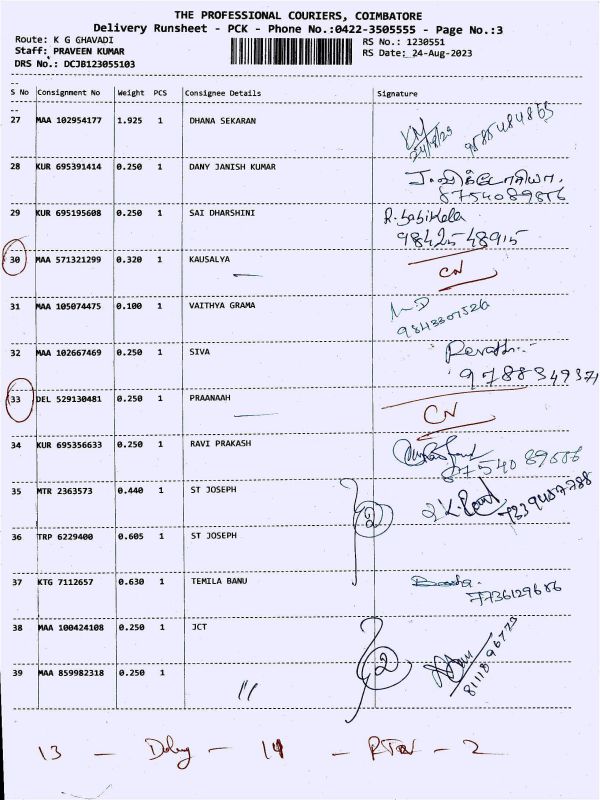 THE PROFESSIONAL COURIERS, COIMBATORE
Delivery Runsheet - PCK - Phone No.:0422-3505555 - Page No.:3
Route: K G GHAVADI RS No.: 1230551
Staff: PRAVEEN KUMAR RS Date: 24-Aug-2023
DRS No.: DCJB123055103
S No Consignment No Weight PCS Consignee Details Signature
27 MAA 102954177 1.925 1 DHANA SEKARAN
24/8/23
28 KUR 695391414 0.250 1 DANY JANISH KUMAR
29 KUR 695195608 0.250 1 SAI DHARSHINI R. Sasikela
98425 48915
30 MAA 571321299 0.320 1 KAUSALYA CN
31 MAA 105074475 0.100 1 VAITHYA GRAMA
32 MAA 102667469 0.250 1 SIVA Revathi
9788349371
33 DEL 529130481 0.250 1 PRAANAAH CN
34 KUR 695356633 0.250 1 RAVI PRAKASH
35 MTR 2363573 0.440 1 ST JOSEPH 2
36 TRP 6229400 0.605 1 ST JOSEPH
37 KTG 7112657 0.630 1 TEMILA BANU
7736129686
38 MAA 100424108 0.250 1 JCT 2
39 MAA 859982318 0.250 1 "
13 - Delivery - 11 - RTN - 2